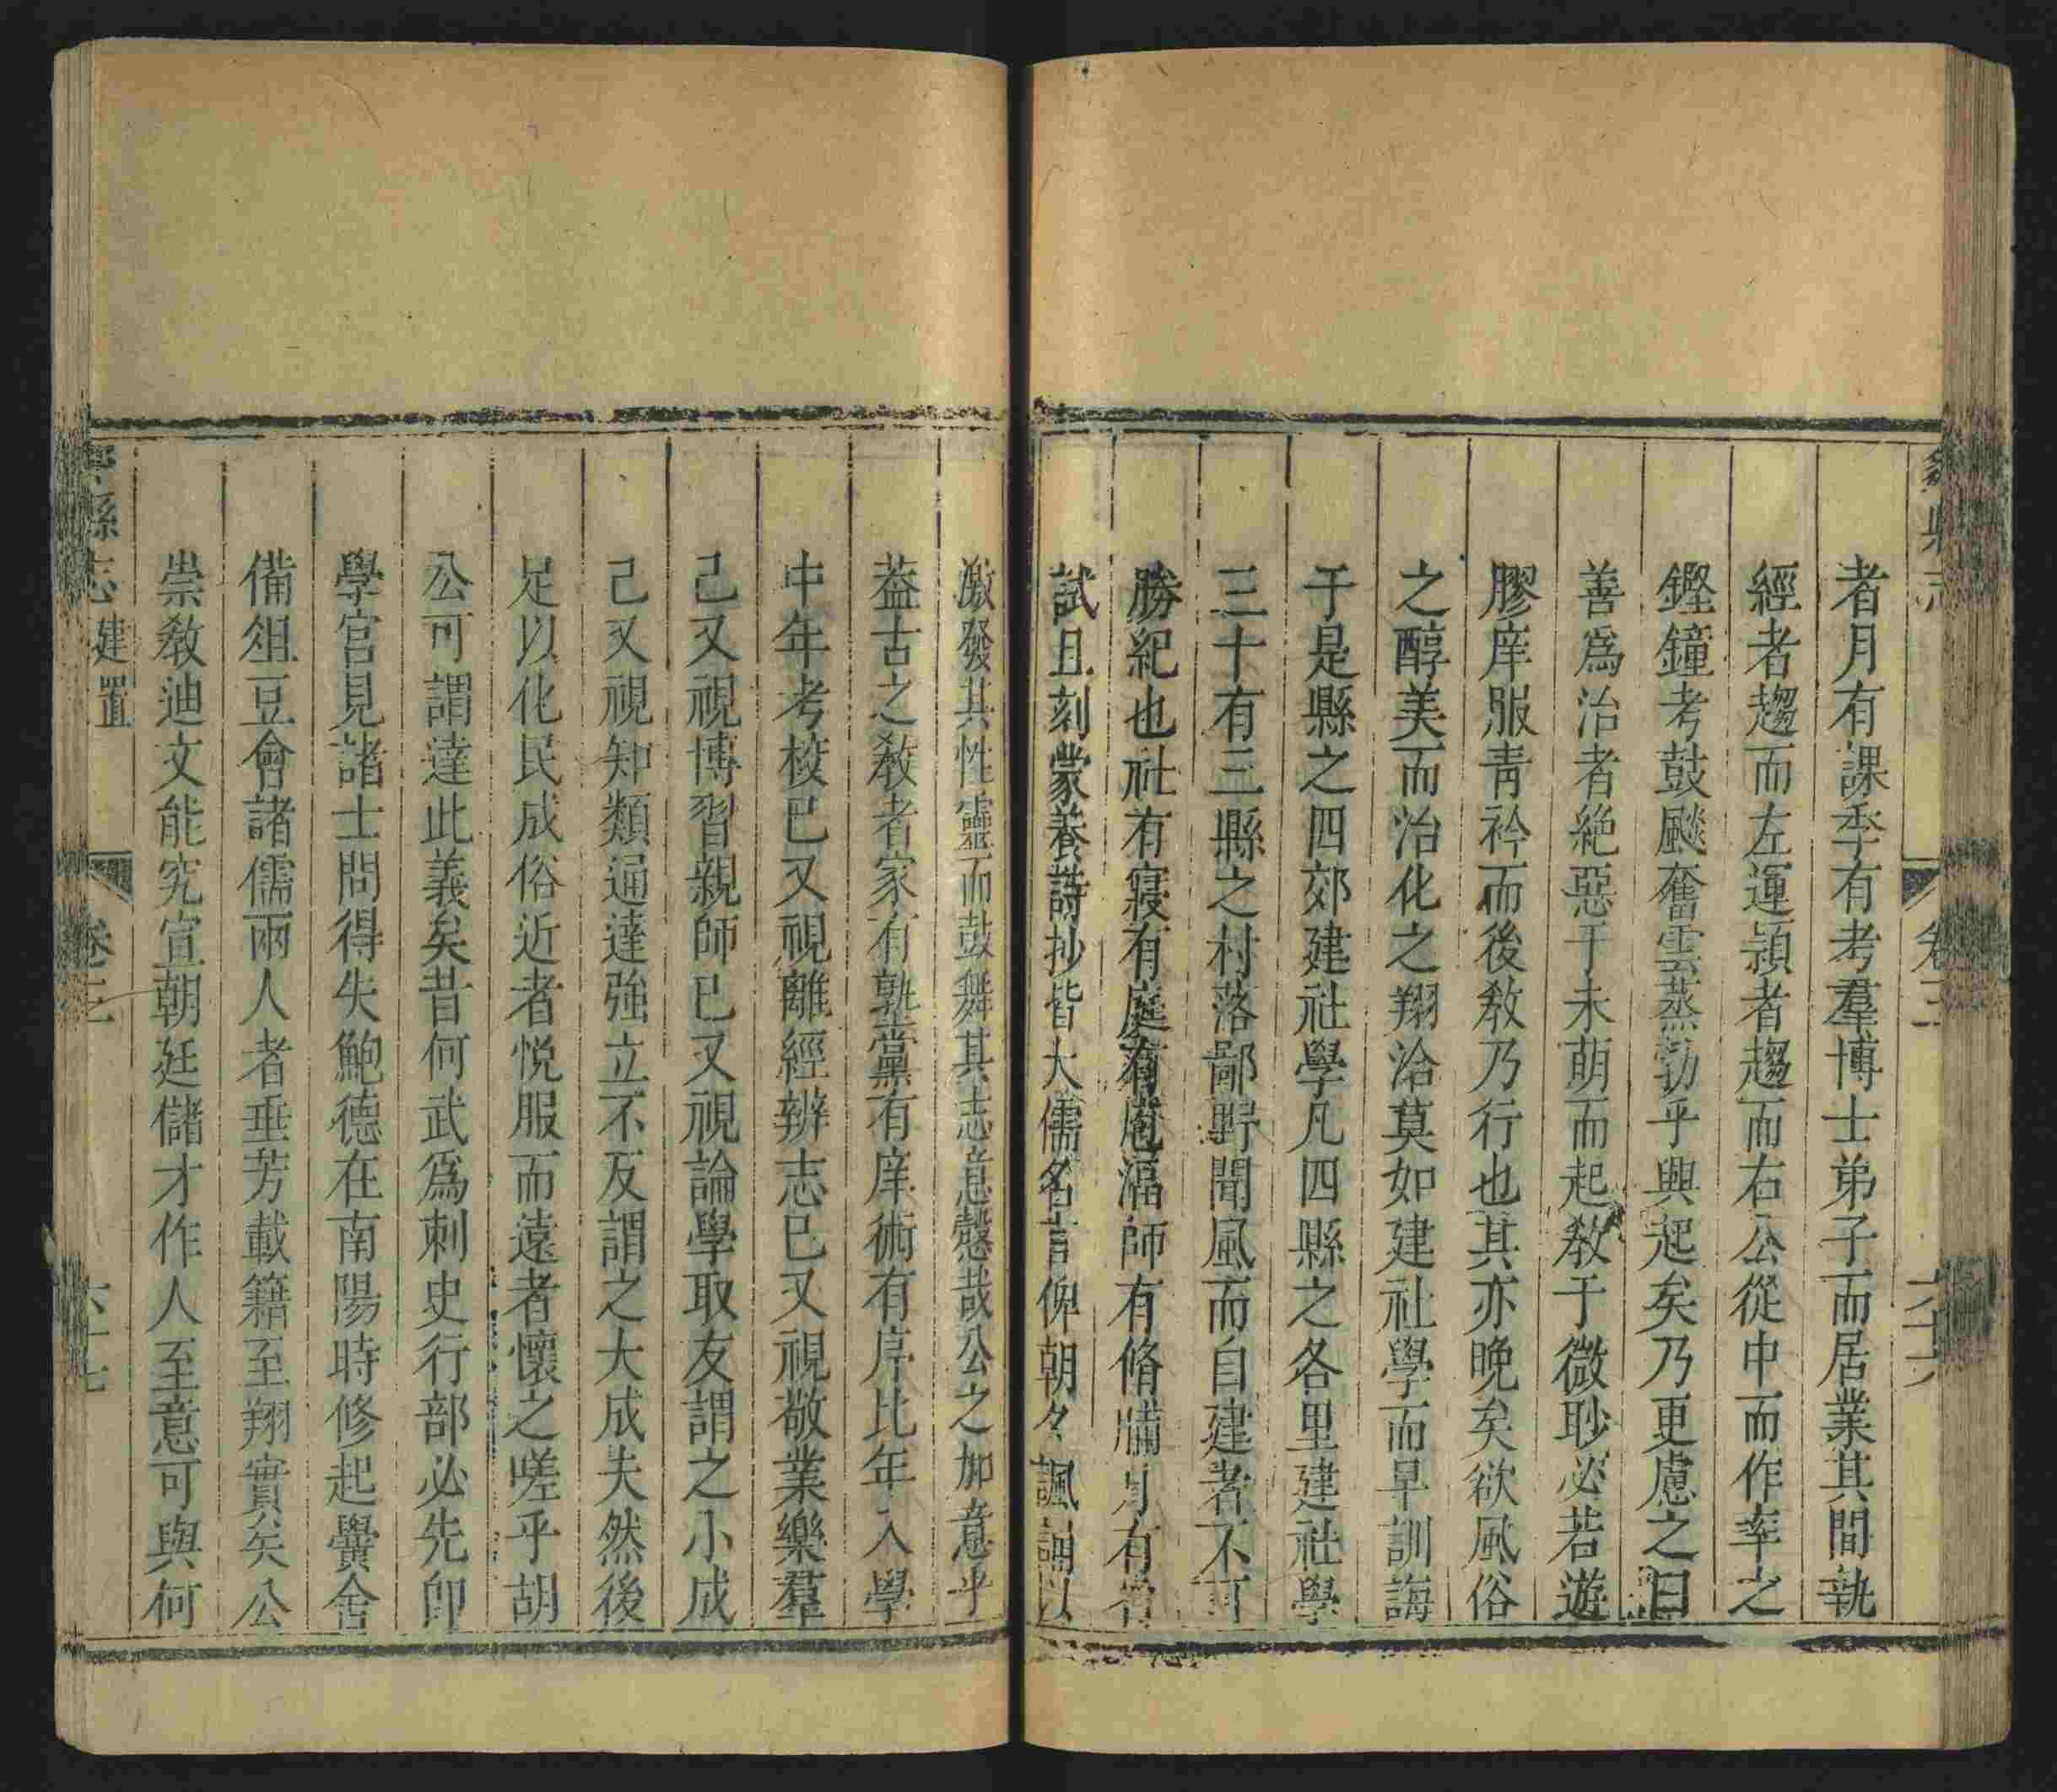 者月有課季有考羣博士弟子而居業其間執
經者趨而左運頴者趨而右公從中而作率之
鏗鐘考鼓颷奮雲蒸勃乎興起矣乃更慮之曰
善爲治者絶惡于未萌而起敎于微眇必若遊
膠庠服青衿而後敎乃行也其亦晚矣欲風俗
之醇美而治化之翔洽莫如建社學而早訓誨
于是縣之四郊建社學凡四縣之各里建社學
三十有三縣之村落鄙野聞風而自建者不可
勝紀也社有寢有庭有庖湢師有脩牖月有
試且刻蒙養詩抄皆大儒名言俾朝々諷誦以
激發其性靈而鼓舞其志意慤哉公之加意乎
葢古之敎者家有塾黨有庠術有序比年入學
中年考校巳又視離經辨志巳又視敬業樂羣
己又視博習親師巳又視論學取友謂之小成
己又視知類通達強立不反謂之大成夫然後
足以化民成俗近者悅服而遠者懷之嗟乎胡
公可謂達此義矣昔何武爲刺史行部必先卽
學宮見諸士問得失鮑德在南陽時修起黌舍
備俎豆會諸儒兩人者垂芳載籍至翔實矣公
崇敎迪文能究宣朝廷儲才作人至意可與何
縣志 建置 卷三 六十七